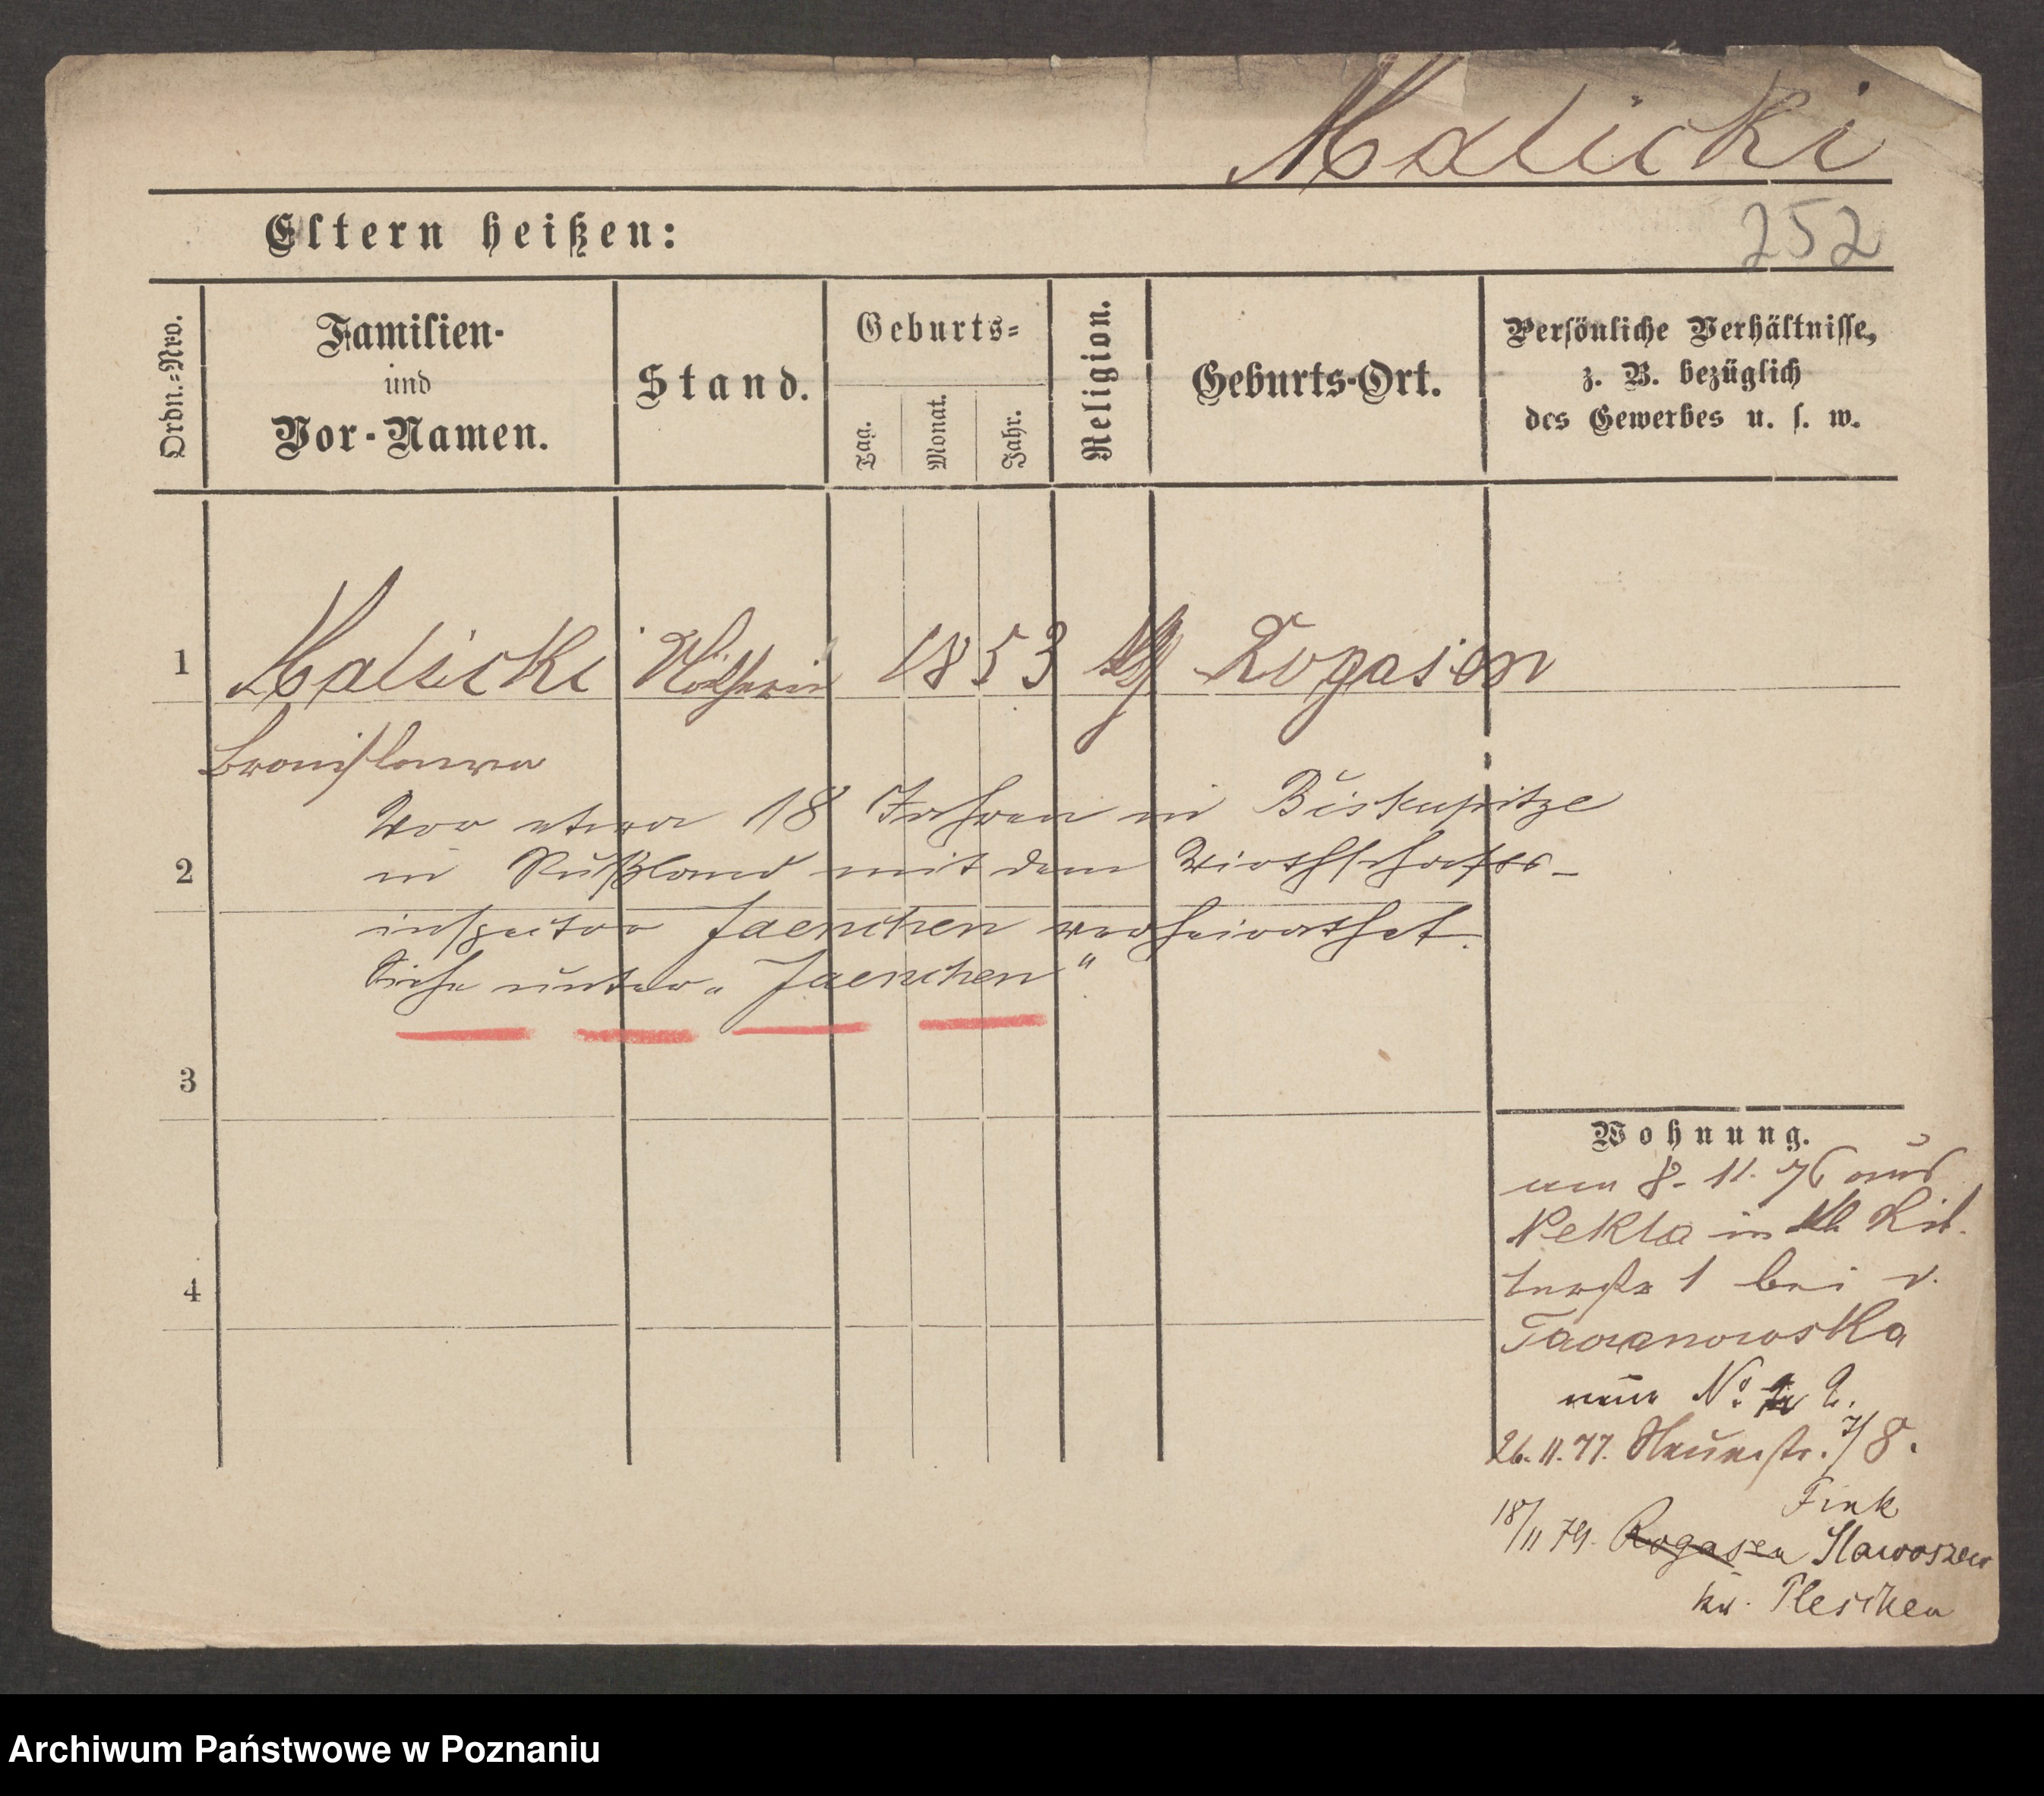 Malicki
252
Eltern heißen:
Ordn.=Nro.
Familien-
und
Vor-Namen.
Stand.
Geburts=
Tag.
Monat.
Jahr.
Religion.
Geburts-Ort.
Persönliche Verhältnisse,
z. B. bezüglich
des Gewerbes u. s. w.
1 Malicki 1853 Rogasen
Bronislawa
Vor etwa 18 Jahren in Biskupitze
2
in Rußland mit dem Wirthschafts-
inspector Jaenchen verheirathet.
Siehe unter „Jaenchen"
3
4
Wohnung.
am 8. 11. 76 aus
Nekla in Kl. Rit-
terstr 1 bei v.
Taczanowska
nun No. 2.
26. 11. 77. Neuestr. 7/8.
Fink
18/11 79. Rogasen Slawoszew
Kr. Pleschen
Archiwum Państwowe w Poznaniu